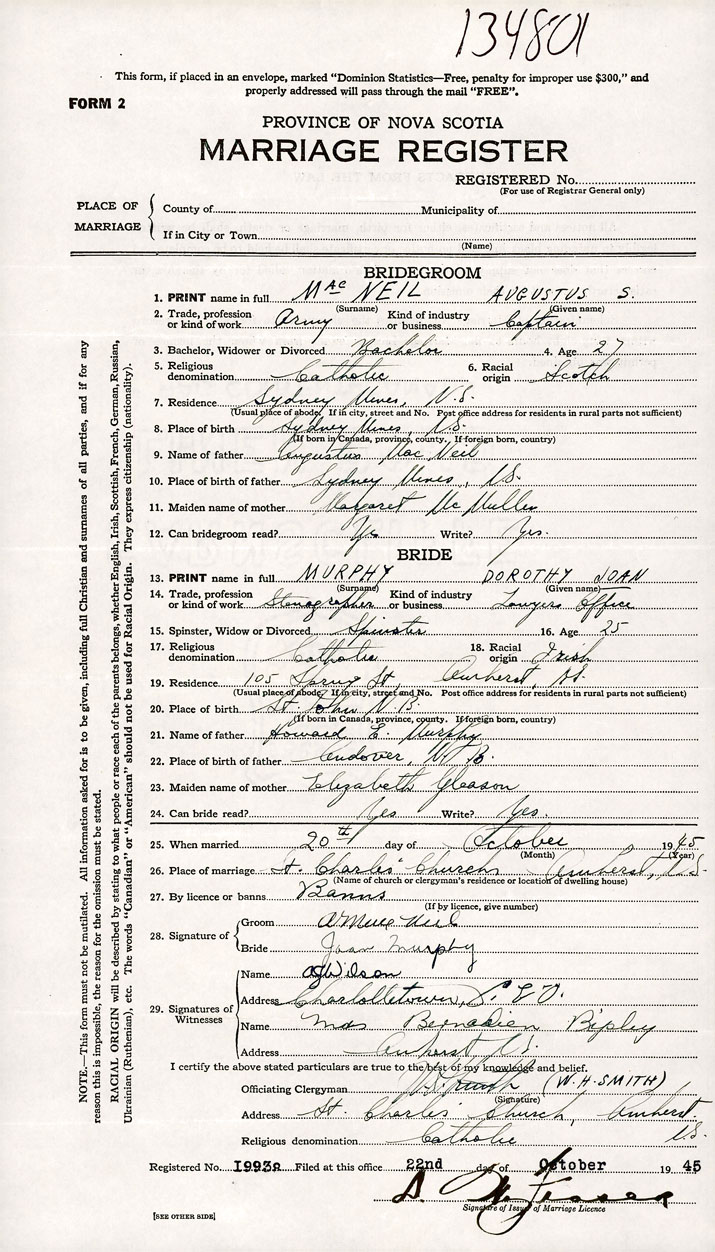 134801
This form, if placed in an envelope, marked “Dominion Statistics—Free, penalty for improper use $300,” and
properly addressed will pass through the mail “FREE”.
FORM 2
PROVINCE OF NOVA SCOTIA
MARRIAGE REGISTER
REGISTERED No.
(For use of Registrar General only)
PLACE OF MARRIAGE
County of Municipality of
If in City or Town
(Name)
BRIDEGROOM
1. PRINT name in full MacNEIL AUGUSTUS S.
(Surname) (Given name)
2. Trade, profession or kind of work Army Kind of industry or business Captain
3. Bachelor, Widower or Divorced Bachelor 4. Age 27
5. Religious denomination Catholic 6. Racial origin Scotch
7. Residence Sydney Mines, N.S.
(Usual place of abode. If in city, street and No. Post office address for residents in rural parts not sufficient)
8. Place of birth Sydney Mines, N.S.
(If born in Canada, province, county. If foreign born, country)
9. Name of father Augustus Mac Neil
10. Place of birth of father Sydney Mines, N.S.
11. Maiden name of mother Margaret Mc Mullen
12. Can bridegroom read? Yes Write? Yes.
BRIDE
13. PRINT name in full MURPHY DOROTHY JOAN
(Surname) (Given name)
14. Trade, profession or kind of work Stenographer Kind of industry or business Lawyers Office
15. Spinster, Widow or Divorced Spinster 16. Age 25
17. Religious denomination Catholic 18. Racial origin Irish
19. Residence 105 Spring St., Amherst, N.S.
(Usual place of abode. If in city, street and No. Post office address for residents in rural parts not sufficient)
20. Place of birth St. John N.B.
(If born in Canada, province, county. If foreign born, country)
21. Name of father Howard E. Murphy
22. Place of birth of father Andover, N.B.
23. Maiden name of mother Elizabeth Gleason
24. Can bride read? Yes Write? Yes.
25. When married 20th day of October 1945
(Month) (Year)
26. Place of marriage St. Charles' Church, Amherst, N.S.
(Name of church or clergyman's residence or location of dwelling house)
27. By licence or banns Banns
(If by licence, give number)
28. Signature of
Groom
Bride Joan Murphy
29. Signatures of Witnesses
Name Wilson
Address Charlottetown, P.E.I.
Name Mrs Ripley
Address Amherst N.S.
I certify the above stated particulars are true to the best of my knowledge and belief.
Officiating Clergyman W.H. Smith (W.H. SMITH)
(Signature)
Address St. Charles' Church, Amherst, N.S.
Religious denomination Catholic
Registered No. 19938 Filed at this office 22nd day of October 1945
Signature of Issuer of Marriage Licence
[SEE OTHER SIDE]
NOTE.—This form must not be mutilated. All information asked for is to be given, including full Christian and surnames of all parties, and if for any
reason this is impossible, the reason for the omission must be stated.
RACIAL ORIGIN will be described by stating to what people or race each of the parents belongs, whether English, Irish, Scottish, French, German, Russian,
Ukrainian (Ruthenian), etc. The words “Canadian” or “American” should not be used for Racial Origin. They express citizenship (nationality).